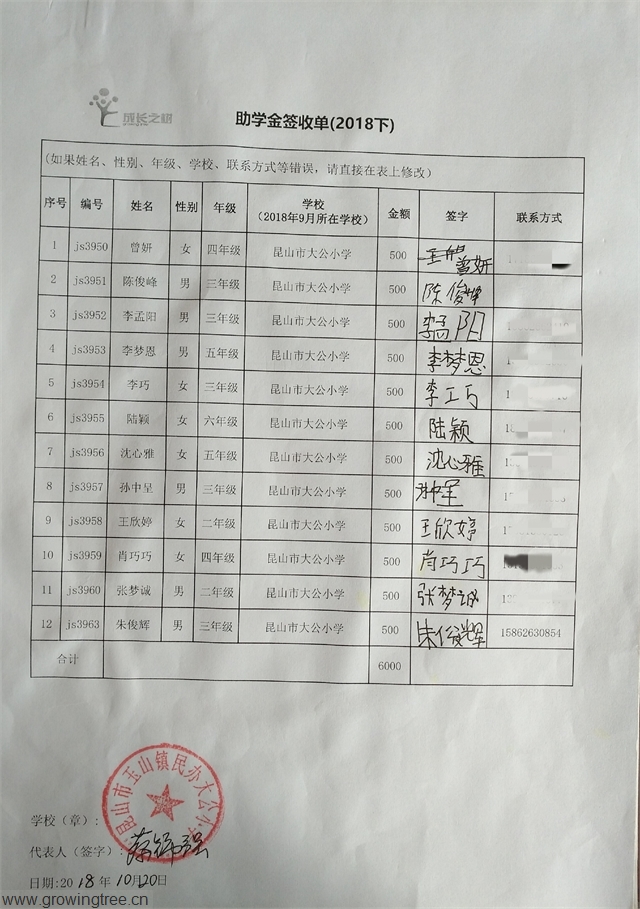 成长之树
助学金签收单(2018下)
(如果姓名、性别、年级、学校、联系方式等错误，请直接在表上修改)
序号 编号 姓名 性别 年级 学校 (2018年9月所在学校) 金额 签字 联系方式
1 js3950 曾妍 女 四年级 昆山市大公小学 500 曾妍
2 js3951 陈俊峰 男 三年级 昆山市大公小学 500 陈俊峰
3 js3952 李孟阳 男 三年级 昆山市大公小学 500 李孟阳
4 js3953 李梦恩 男 五年级 昆山市大公小学 500 李梦恩
5 js3954 李巧 女 三年级 昆山市大公小学 500 李巧
6 js3955 陆颖 女 六年级 昆山市大公小学 500 陆颖
7 js3956 沈心雅 女 五年级 昆山市大公小学 500 沈心雅
8 js3957 孙中呈 男 三年级 昆山市大公小学 500
9 js3958 王欣婷 女 二年级 昆山市大公小学 500 王欣婷
10 js3959 肖巧巧 女 四年级 昆山市大公小学 500 肖巧巧
11 js3960 张梦诚 男 二年级 昆山市大公小学 500 张梦诚
12 js3963 朱俊辉 男 三年级 昆山市大公小学 500 朱俊辉 15862630854
合计 6000
昆山市玉山镇民办大公小学
学校（章）:
代表人（签字）:
日期:2018年10月20日
www.growingtree.cn